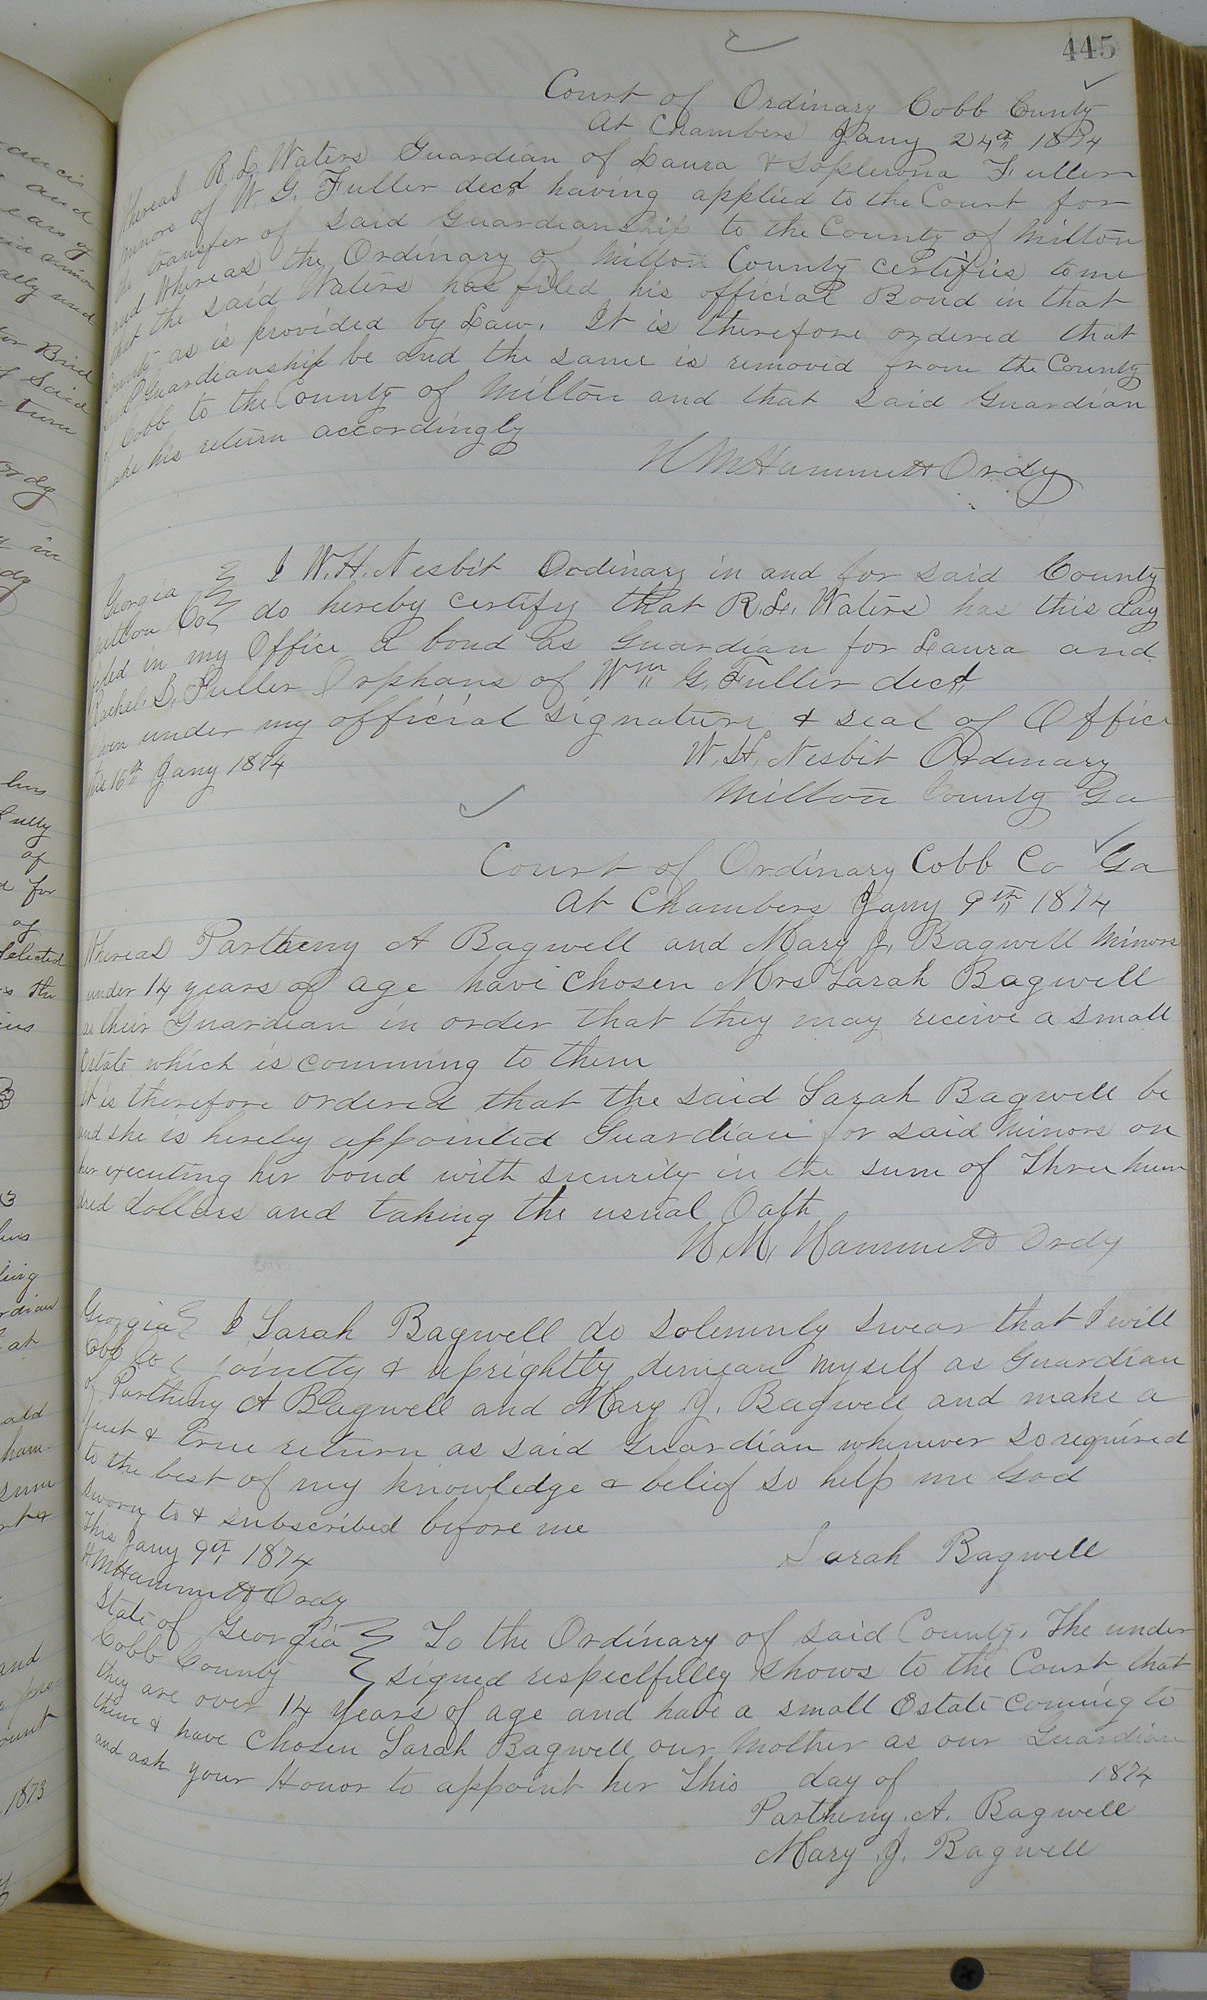 445
Court of Ordinary Cobb Cunty
At Chambers Jany 24th 1874
Whereas R. L. Waters Guardian of Laura & Fuller
minors of W. G. Fuller decd having applied to the Court for
the transfer of said Guardianship to the County of Milton
and Whereas the Ordinary of Milton County certifies to me
that the said Waters has filed his official Bond in that
County as is provided by Law. It is therefore ordered that
said Guardianship be and the same is removed from the County
of Cobb to the County of Milton and that said Guardian
make his return accordingly
H M Hammett Ordy
Georgia I W. H. Nesbit Ordinary in and for said County
Milton Co do hereby certify that R. L. Waters has this day
filed in my Office a bond as Guardian for Laura and
Rachel S. Fuller Orphans of Wm G. Fuller decd
Given under my official signature & seal of Office
this 16th Jany 1874
W. H. Nesbit Ordinary
Milton County Ga
Court of Ordinary Cobb Co Ga
At Chambers Jany 9th 1874
Whereas Partheny A Bagwell and Mary J. Bagwell Minors
under 14 years of age have chosen Mrs Sarah Bagwell
as their Guardian in order that they may receive a small
Estate which is comming to them
It is therefore ordered that the said Sarah Bagwell be
and she is hereby appointed Guardian for said Minors on
her executing her bond with security in the sum of Three hun
dred dollars and taking the usual Oath
H. M. Hammett Ordy
Georgia I Sarah Bagwell do Solemnly swear that I will
Cobb Co jointly & uprightly demean myself as Guardian
of Partheny A Bagwell and Mary J. Bagwell and make a
just & true return as said Guardian whenever so required
to the best of my knowledge & belief so help me God
sworn to & subscribed before me
This Jany 9th 1874
Sarah Bagwell
H M Hammett Ordy
State of Georgia To the Ordinary of said County. The under
Cobb County signed respectfully shows to the Court that
they are over 14 years of age and have a small Estate coming to
them & have Chosen Sarah Bagwell our Mother as our Guardian
and ask your Honor to appoint her This day of 1874
Partheny A. Bagwell
Mary J. Bagwell